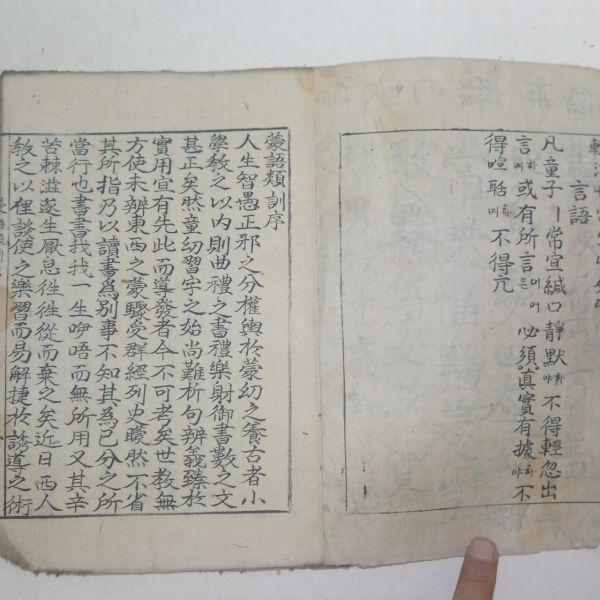 言語
凡童子ㅣ常宜緘口靜默하야不得輕忽出
言하며或有所言이어든必須真實有據하야不
得喧聒하며不得亢
蒙語類訓序
人生智愚正邪之分權輿於蒙幼之養古者小
學教之以內則曲禮之書禮樂射御書數之文
甚正矣然童幼習字之始尚難析句辨義臻於
實用宜有先此而導發者今不可考矣世教無
方使未辨東西之蒙驟受群經列史曚然不省
其所指乃以讀書爲別事不知其爲己分之所
當行也書書我我一生咿唔而無所用又其辛
苦棘澁遂生厭息徃徃從而棄之矣近日西人
教之以俚諺使之樂習而易解捷於誘導之術